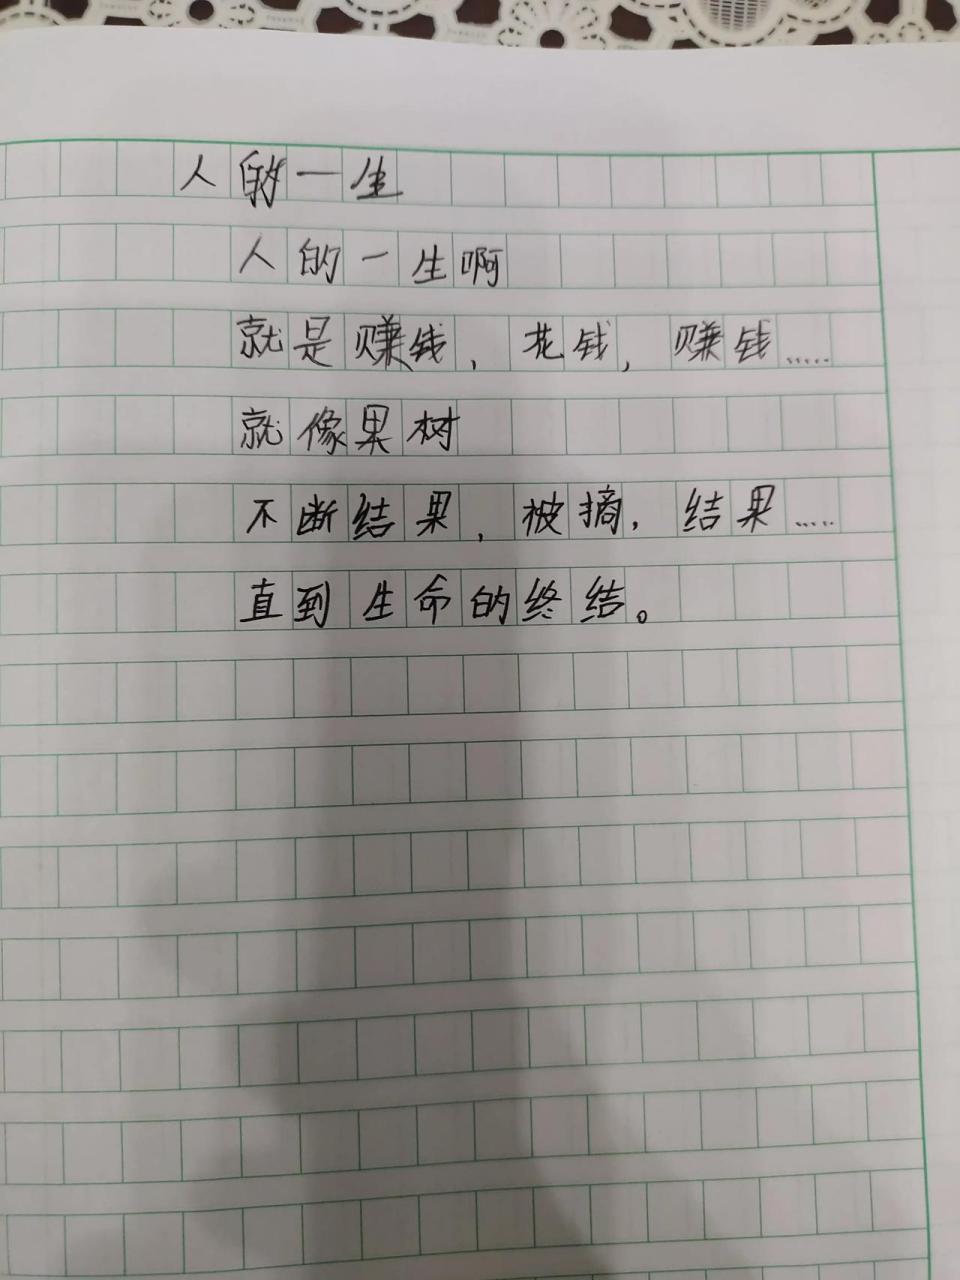 人的一生
人的一生啊
就是赚钱，花钱，赚钱……
就像果树
不断结果，被摘，结果……
直到生命的终结。